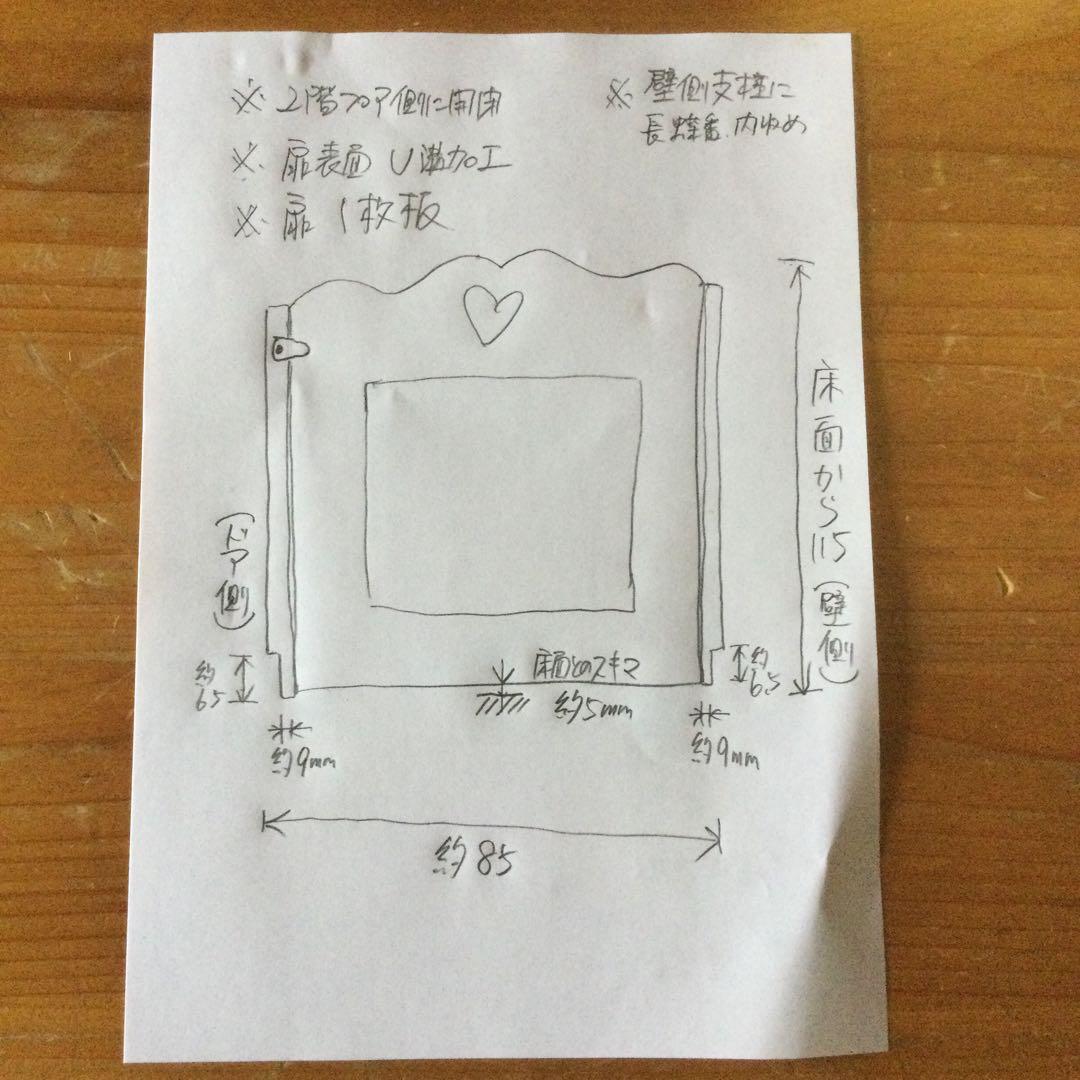 ※ 2階フロア側に開閉
※ 扉表面 U溝加工
※ 扉 1枚板
※ 壁側支柱に
長蝶番、内収め
床面から115
(ドア側)
(壁側)
約65
床面とのスキマ
約5mm
約65
約9mm
約9mm
約85